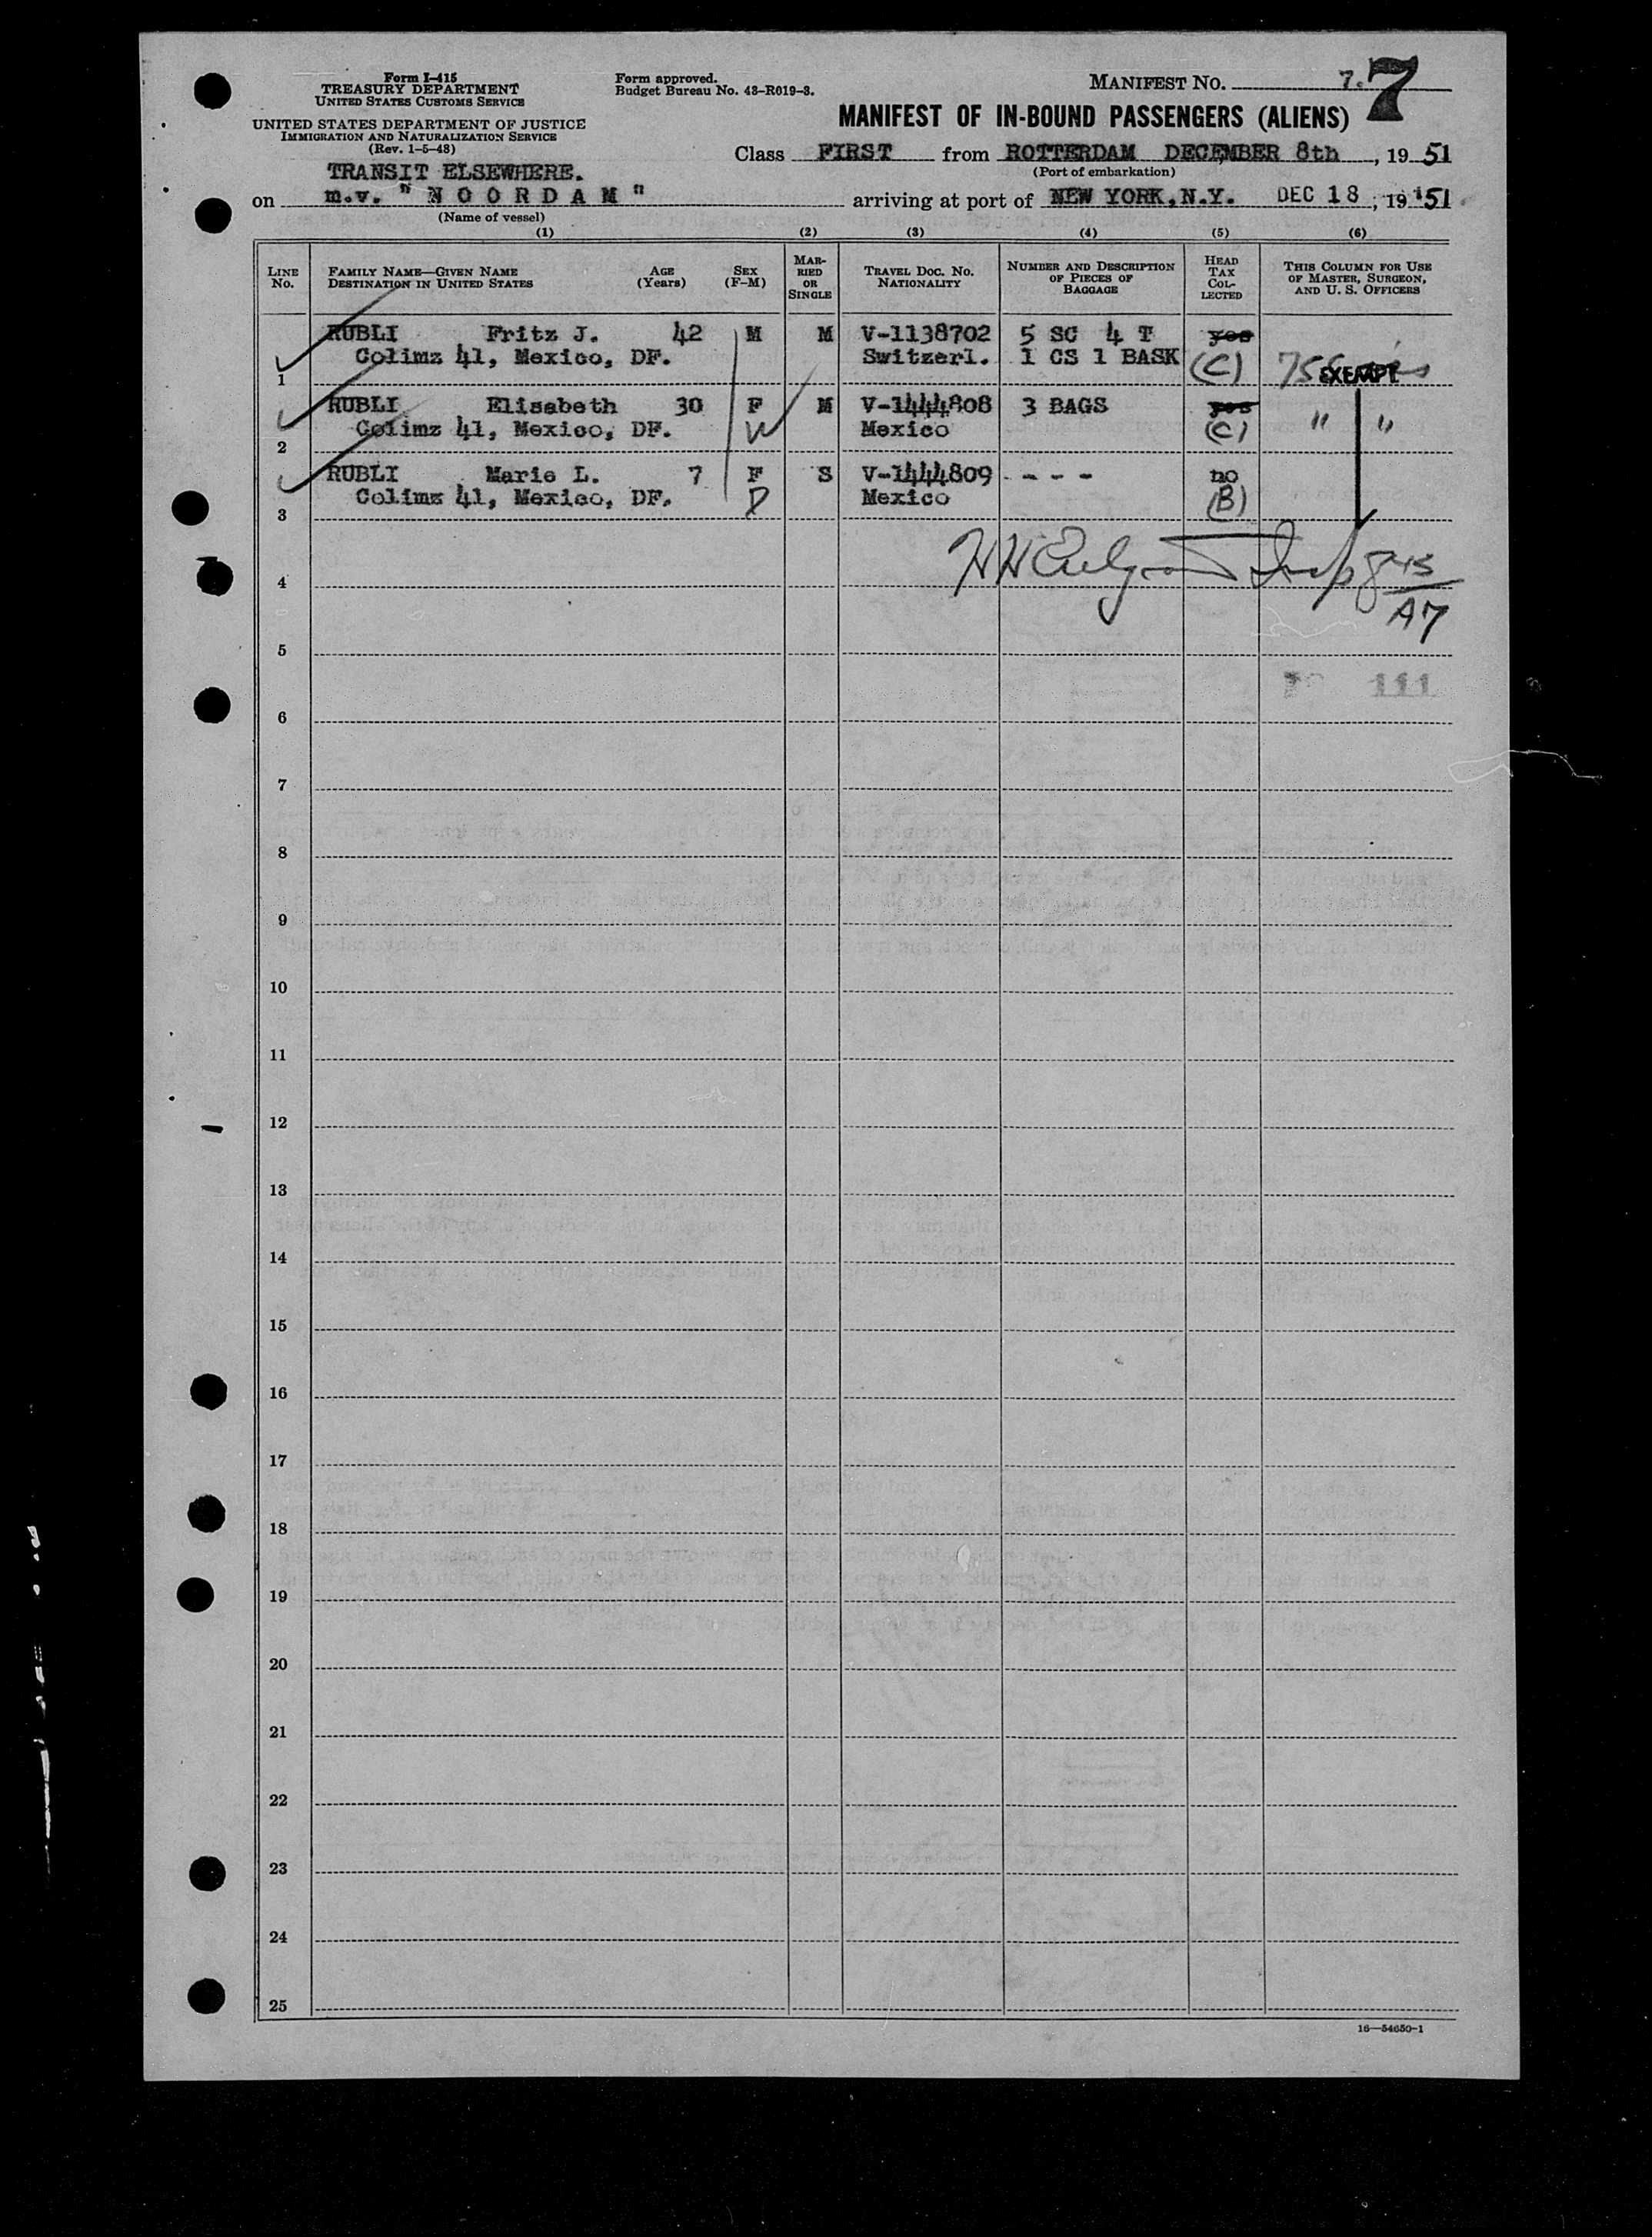 Form I-415
TREASURY DEPARTMENT
UNITED STATES CUSTOMS SERVICE
UNITED STATES DEPARTMENT OF JUSTICE
IMMIGRATION AND NATURALIZATION SERVICE
(Rev. 1-5-48)
Form approved.
Budget Bureau No. 43-R019-3.
MANIFEST NO. 7. 7
MANIFEST OF IN-BOUND PASSENGERS (ALIENS)
Class FIRST from ROTTERDAM DECEMBER 8th, 19 51
(Port of embarkation)
TRANSIT ELSEWHERE.
on m.v. "NOORDAM" arriving at port of NEW YORK, N.Y. DEC 18, 19 51
(Name of vessel)
(1) (2) (3) (4) (5) (6)
LINE NO.
FAMILY NAME—GIVEN NAME
DESTINATION IN UNITED STATES
AGE (Years)
SEX (F-M)
MARRIED OR SINGLE
TRAVEL DOC. NO. NATIONALITY
NUMBER AND DESCRIPTION OF PIECES OF BAGGAGE
HEAD TAX COLLECTED
THIS COLUMN FOR USE OF MASTER, SURGEON, AND U. S. OFFICERS
RUBLI Fritz J. 42 M M V-1138702 5 SC 4 T yes
1 Colimz 41, Mexico, DF. Switzerl. 1 CS 1 BASK (C) EXEMPT
RUBLI Elisabeth 30 F M V-1444808 3 BAGS yes
2 Colimz 41, Mexico, DF. W Mexico (C) " "
RUBLI Marie L. 7 F S V-1444809 - - - no
3 Colimz 41, Mexico, DF. D Mexico (B)
4
A7
5
111
6
7
8
9
10
11
12
13
14
15
16
17
18
19
20
21
22
23
24
25
16—54650-1